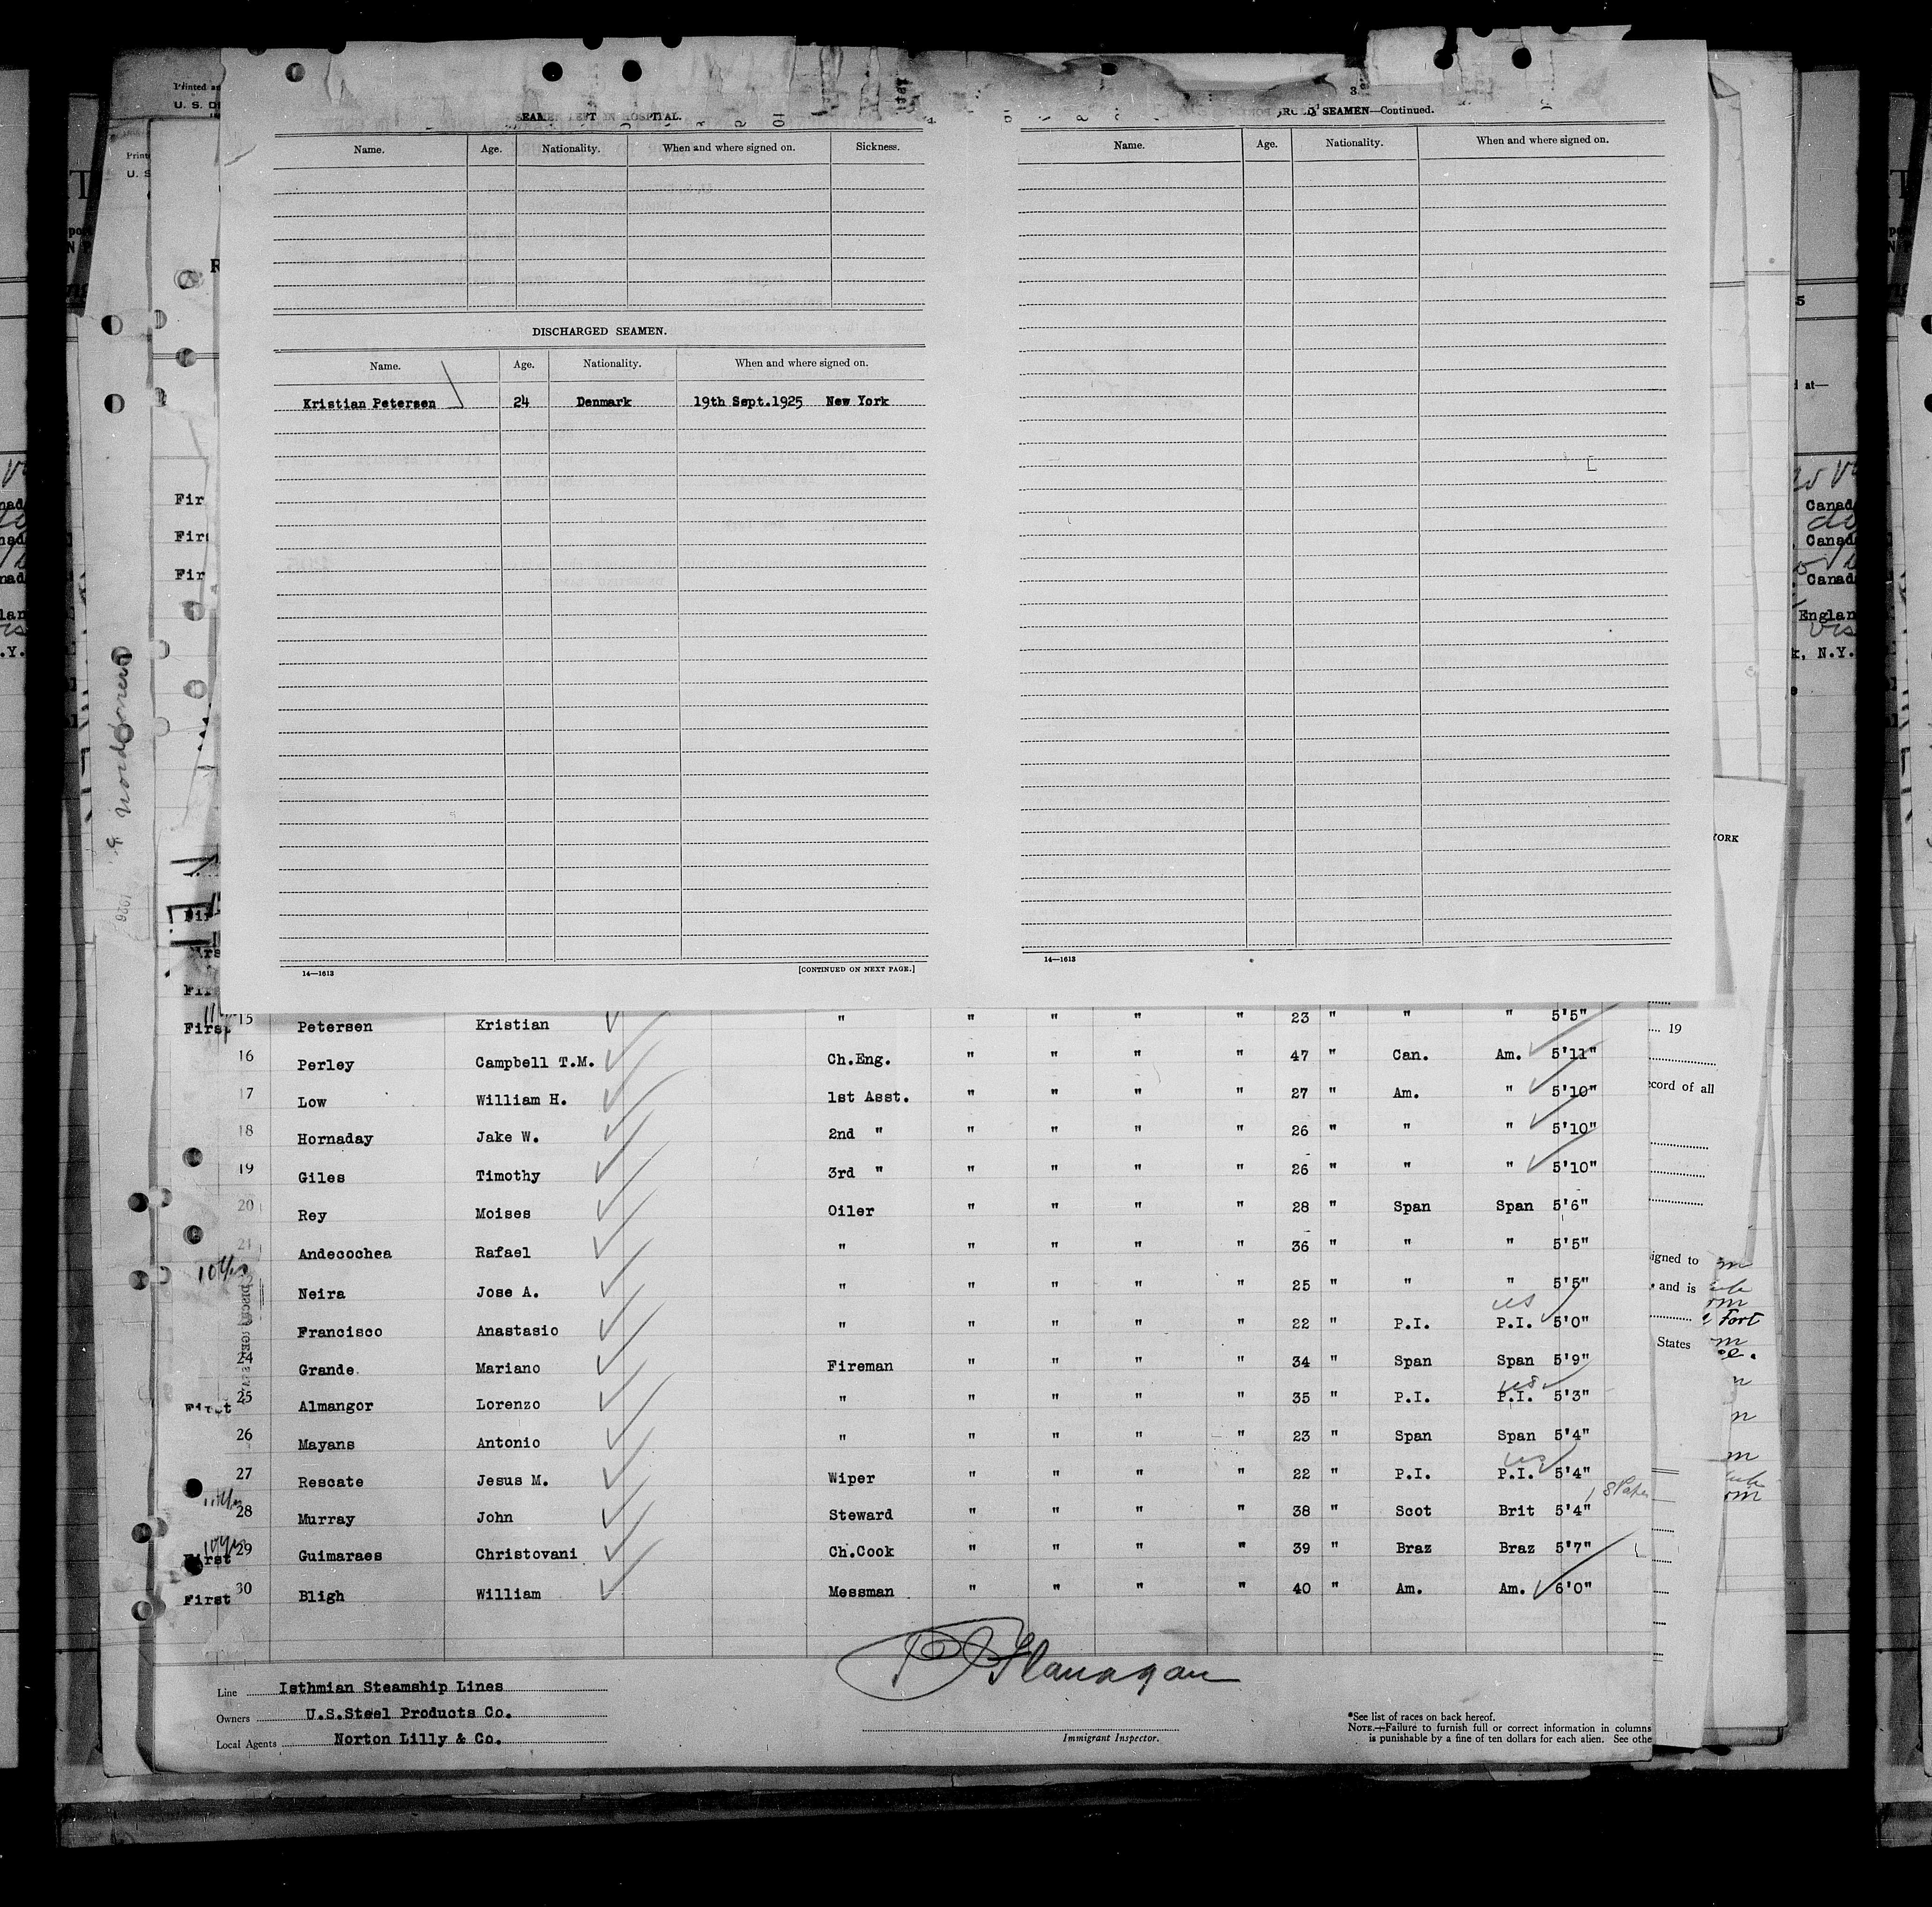 SEAMEN LEFT IN HOSPITAL.
Name. Age. Nationality. When and where signed on. Sickness.
DISCHARGED SEAMEN.
Name. Age. Nationality. When and where signed on.
Kristian Petersen 24 Denmark 19th Sept.1925 New York
14—1613 [CONTINUED ON NEXT PAGE.]
3
SEAMEN—Continued.
Name. Age. Nationality. When and where signed on.
14—1613
Printed
U. S.
Fir
Fir
Fir
Canad
Canad
Canad
Englan
N.Y.
YORK
First 15 Petersen Kristian " " " " " 23 " " " 5'5"
16 Perley Campbell T.M. Ch.Eng. " " " " 47 " Can. Am. 5'11"
17 Low William H. 1st Asst. " " " " 27 " Am. " 5'10"
18 Hornaday Jake W. 2nd " " " " " 26 " " " 5'10"
19 Giles Timothy 3rd " " " " " 26 " " " 5'10"
20 Rey Moises Oiler " " " " 28 " Span Span 5'6"
21 Andecochea Rafael " " " " " 36 " " " 5'5"
Neira Jose A. " " " " " 25 " " " 5'5"
Francisco Anastasio " " " " " 22 " P.I. P.I. 5'0"
24 Grande Mariano Fireman " " " " 34 " Span Span 5'9"
First 25 Almangor Lorenzo " " " " " 35 " P.I. P.I. 5'3"
26 Mayans Antonio " " " " " 23 " Span Span 5'4"
27 Rescate Jesus M. Wiper " " " " 22 " P.I. P.I. 5'4"
28 Murray John Steward " " " " 38 " Scot Brit 5'4"
First 29 Guimaraes Christovani Ch.Cook " " " " 39 " Braz Braz 5'7"
First 30 Bligh William Messman " " " " 40 " Am. Am. 6'0"
19
record of all
signed to
and is
States
Fort
Flanagan
Line Isthmian Steamship Lines
Owners U.S.Steel Products Co.
Local Agents Norton Lilly & Co.
Immigrant Inspector.
*See list of races on back hereof.
NOTE.—Failure to furnish full or correct information in columns
is punishable by a fine of ten dollars for each alien. See othe